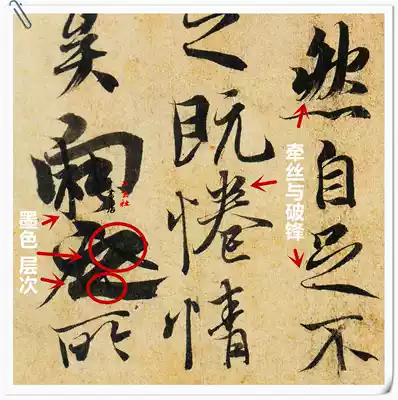 然自足不
之既惓情
矣向之所
牵丝与破锋
墨色 层次